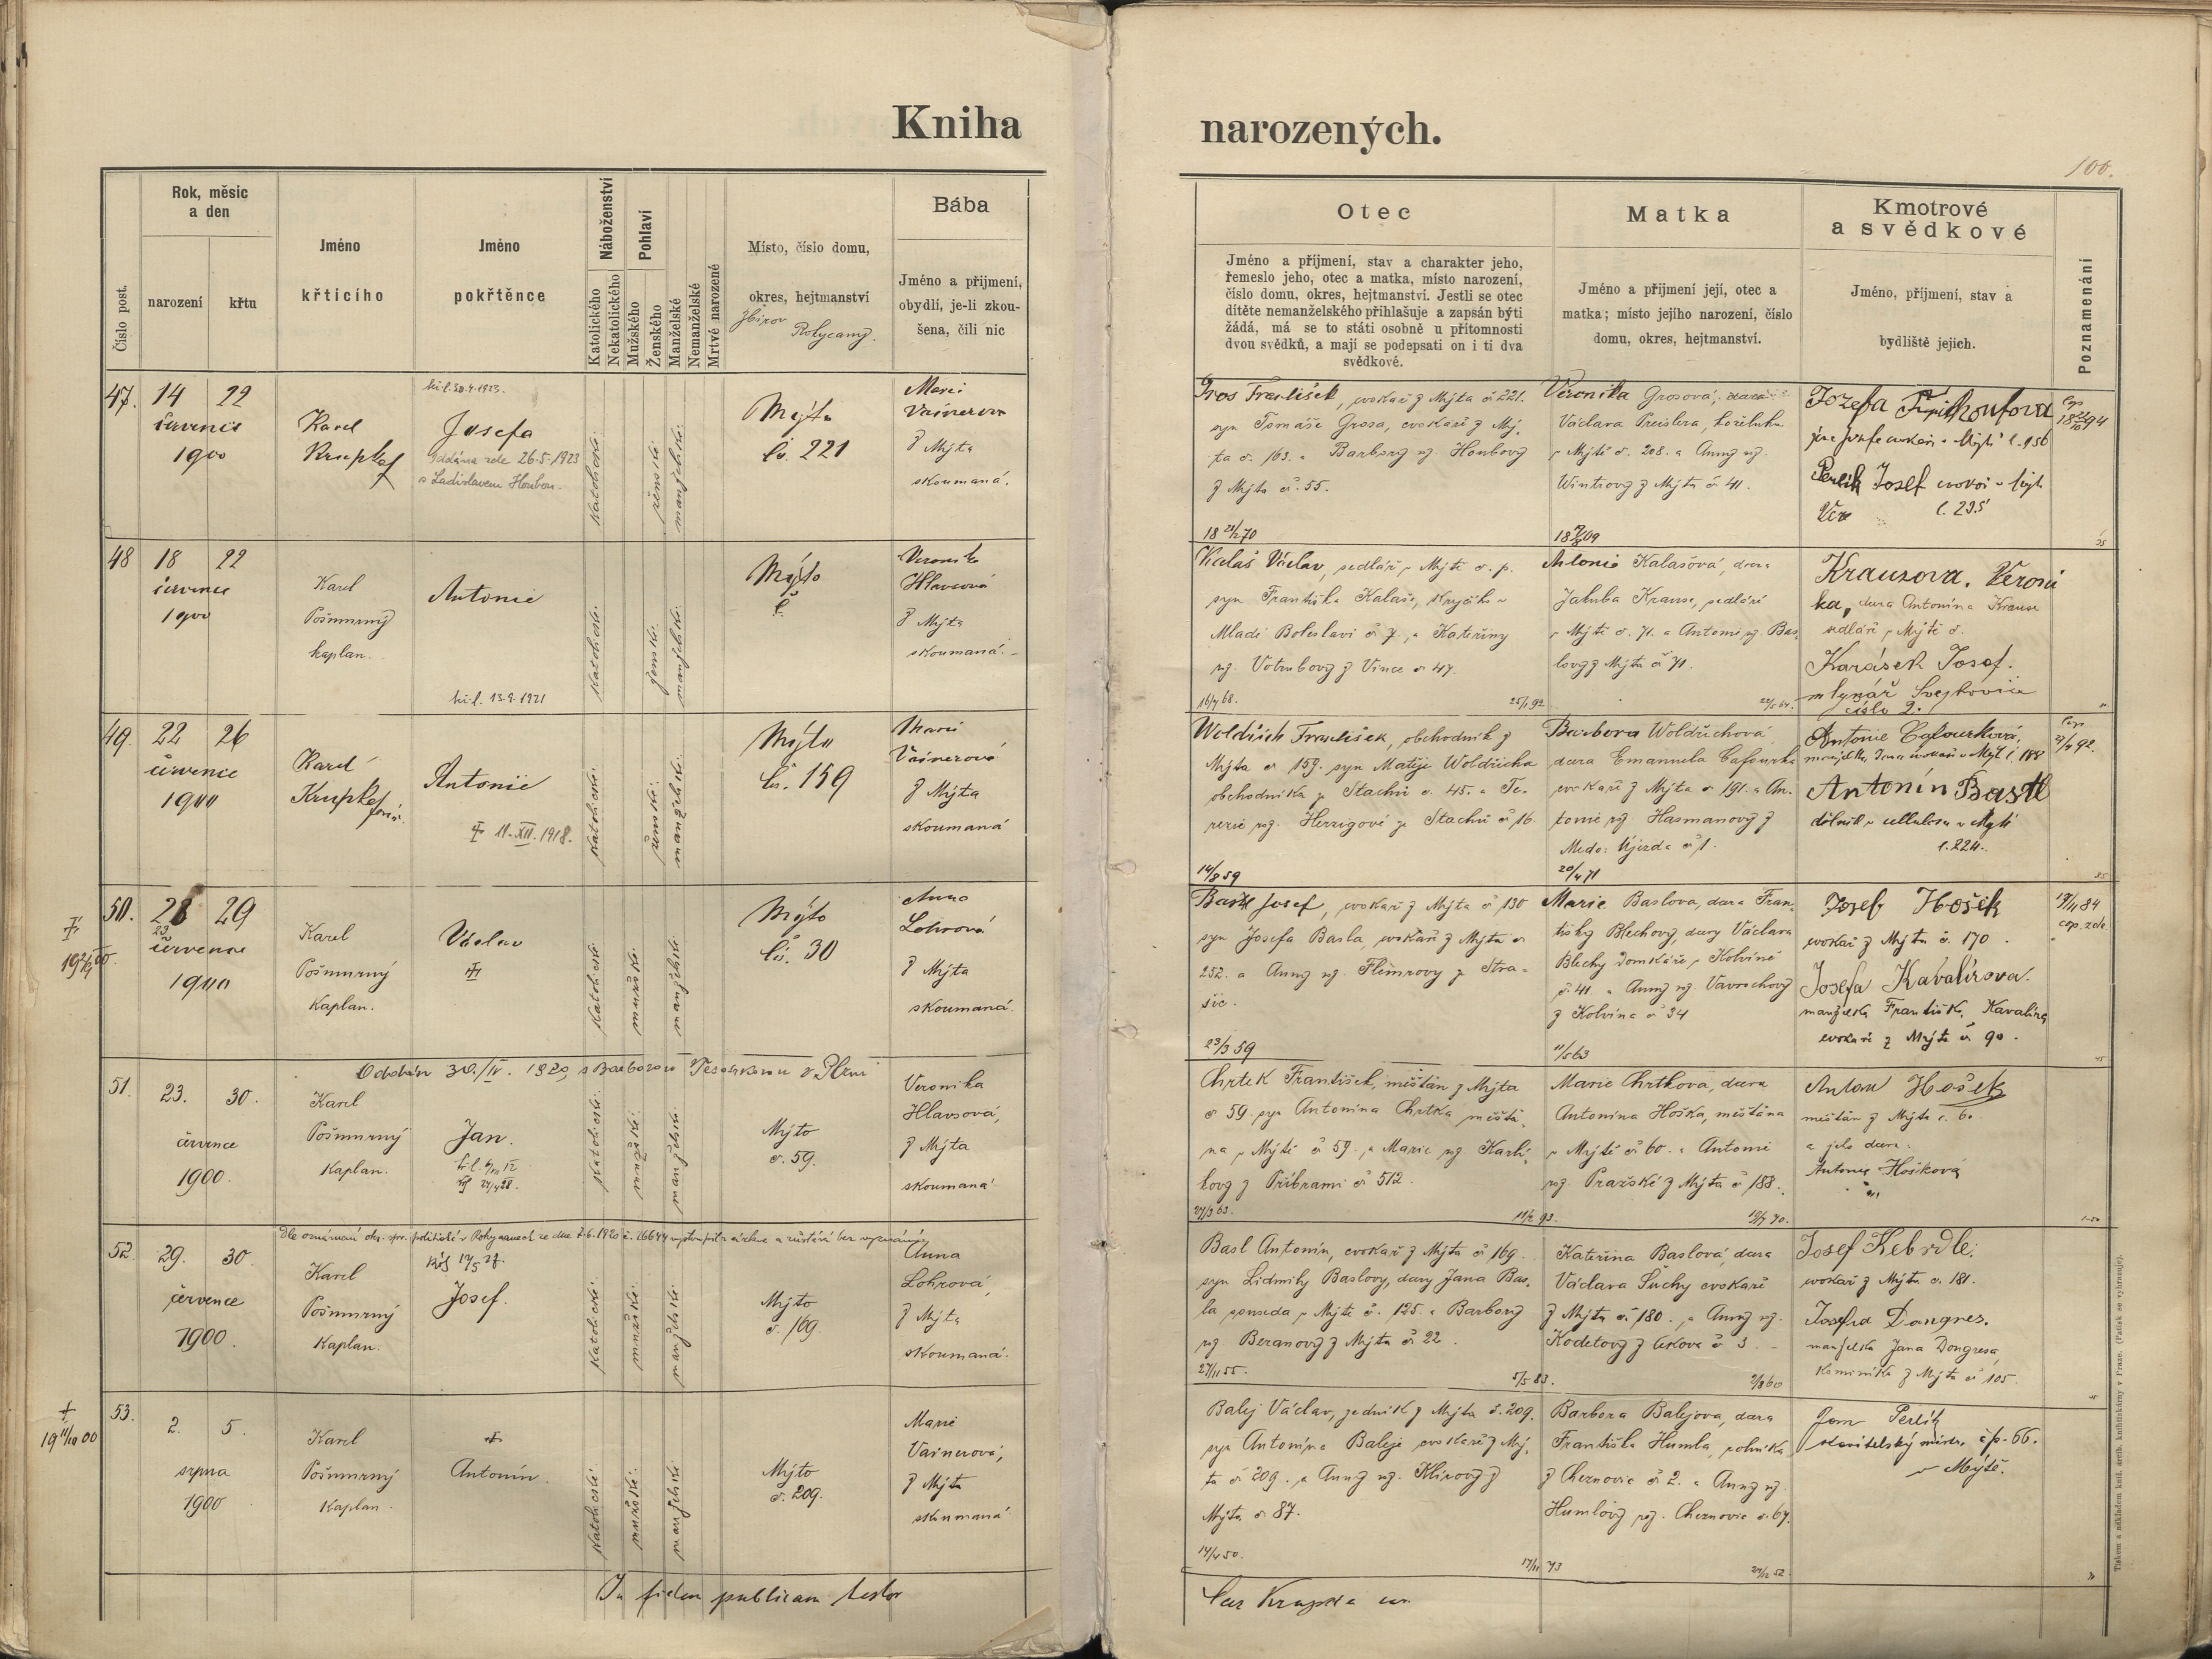 Kniha
narozených.
100.
Číslo post.
Rok, měsíc
a den
narození
křtu
Jméno
křticího
Jméno
pokřtěnce
Náboženství
Katolického
Nekatolického
Pohlaví
Mužského
Ženského
Manželské
Nemanželské
Mrtvě narozené
Místo, číslo domu,
okres, hejtmanství
Zbirov
Rokycany.
Bába
Jméno a příjmení,
obydlí, je-li zkou-
šena, čili nic
Otec
Jméno a příjmení, stav a charakter jeho,
řemeslo jeho, otec a matka, místo narození,
číslo domu, okres, hejtmanství. Jestli se otec
dítěte nemanželského přihlašuje a zapsán býti
žádá, má se to státi osobně u přítomnosti
dvou svědků, a mají se podepsati on i ti dva
svědkové.
Matka
Jméno a příjmení její, otec a
matka; místo jejího narození, číslo
domu, okres, hejtmanství.
Kmotrové
a svědkové
Jméno, příjmení, stav a
bydliště jejich.
Poznamenání
47.
14 22
července
1900
Karel
Krupka
kř. l. 30.4.1923.
Josefa
Oddána zde 26.5.1923
s Ladislavem Houbou.
katolické.
ženské.
manželské.
Mýto
čís. 221
Marie
Vainerova
z Mýta
skoumaná.
Gros František, cvokař z Mýta č 221.
syn Tomáše Grosa, cvokaře z Mý-
ta č. 163. a Barbory roz. Houbovy
z Mýta č. 55.
Veronika Grosová, dcera
Václava Preislera, koželuha
v Mýtě č. 208. a Anny roz.
Wintrovy z Mýta č 41.
Josefa
Perlík Josef
č. 235
48
18 22
července
1900
Karel
Pošmurný
kaplan.
Antonie
kř. l. 13.9.1921
katolické.
ženské.
manželské.
Mýto
č.
Veronika
Hlavsová
z Mýta
skoumaná.
Kalaš Václav, sedlář v Mýtě č. p.
syn Františka Kalaše, krejčího v
Mladé Boleslavi č 7., a Kateřiny
roz. Votrubovy z Vince č 47.
16/9 68.
Antonie Kalašová, dcera
Jakuba Krause, sedláře
v Mýtě č. 71. a Antonie roz. Bas-
lovy z Mýta č 71.
Krausova, Veroni
ka, dcera Antonína Krause
sedláře v Mýtě č.
Karásek Josef.
mlynář Svejkovice
číslo 2.
49.
22 26
července
1900
Karel
Krupka
farář.
Antonie
11. XII. 1918.
katolické.
ženské.
manželské.
Mýto
čís. 159
Marie
Vainerová
z Mýta
skoumaná
Woldřich František, obchodník z
Mýta č 159. syn Matěje Woldřicha
obchodníka ze Stachů č. 45. a Te-
rezie roz. Herzigové ze Stachů č 16.
14/8 59
Barbora Woldřichová
dcera Emanuela Cafourka
cvokaře z Mýta č 191. a An-
tonie roz Hasmanovy z
Medo. Újezda č 1.
20/4 71
Antonie Cafourková,
Antonín Bastl
dělník v cellulosu v Mýtě
č. 224.
50.
28 29
23
července
1900
Karel
Pošmurný
Kaplan.
Václav
katolické
mužské.
manželské
Mýto
čís. 30
Anna
Lohrová
z Mýta
skoumaná.
Basl Josef, cvokař z Mýta č 130
syn Josefa Basla, cvokaře z Mýta č
252. a Anny roz. Fleimrovy ze Stra-
šic.
23/3 59
Marie Baslova, dcera Fran-
tišky Blechovy, dcery Václava
Blechy domkáře v Kolvíně
č 41. a Anny roz. Vavrochovy
z Kolvína č 34
11/5 63
Josef Hošek
cvokař z Mýta č. 170.
Josefa Kavalírova.
manželka Františka Kavalíra
cvokaře z Mýta č 90.
19/11 84
cop. zde.
Oddán 30./IV. 1920, s Barborou v Plzni
51.
23. 30.
července
1900.
Karel
Pošmurný
Kaplan.
Jan.
katolické.
mužské.
manželské.
Mýto
č. 59.
Veronika
Hlavsová,
z Mýta
skoumaná.
Chrtek František, měšťan z Mýta
č 59. syn Antonína Chrtka, měšťa-
na v Mýtě č 59., a Marie roz Karlí-
kovy z Příbrami č 512.
27/3 63.
Marie Chrtková, dcera
Antonína Hoška, měšťana
v Mýtě č 60. a Antonie
roz. Pražské z Mýta č 188.
19/7 70.
Anton Hošek
měšťan z Mýta č. 60
a jeho dcera
Antonie Hošková
52.
29. 30.
července
1900.
Karel
Pošmurný
Kaplan.
Josef.
katolické.
mužské.
manželské.
Mýto
č. 169.
Anna
Lohrová,
z Mýta
skoumaná.
Basl Antonín, cvokař z Mýta č 169.
syn Lidmily Baslovy, dcery Jana Bas-
la souseda v Mýtě č. 125. a Barbory
roz. Beranovy z Mýta č 22.
27/11 55.
5/5 83.
Kateřina Baslová, dcera
Václava Suchy cvokaře
z Mýta č 180., a Anny roz.
Kodetovy z Cekova č 3.
Josef Kebrdle.
cvokař z Mýta č. 181.
Josefa Dongres.
manželka Jana Dongresa
kominíka z Mýta č 105.
53.
2. 5.
srpna
1900
Karel
Pošmurný
Kaplan.
Antonín.
katolické.
mužské.
manželské
Mýto
č. 209.
Marie
Vainerová,
z Mýta
skoumaná.
Balej Václav, zedník z Mýta č. 209.
syn Antonína Baleje cvokaře z Mý-
ta č 209., a Anny roz. Klírovy z
Mýta č 87.
14/4 50.
Barbora Balejova, dcera
Františka Humla, rolníka
z Chernovic č 2. a Anny roz.
Humlovy roz. Chernovic č. 67.
Jan Perlík
stavitelský mistr, čp. 66.
v Mýtě.
In fidem publicam testor
Car Krupka
Tiskem a nákladem knih. arcib. knihtiskárny v Praze. (Patisk se vyhrazuje).